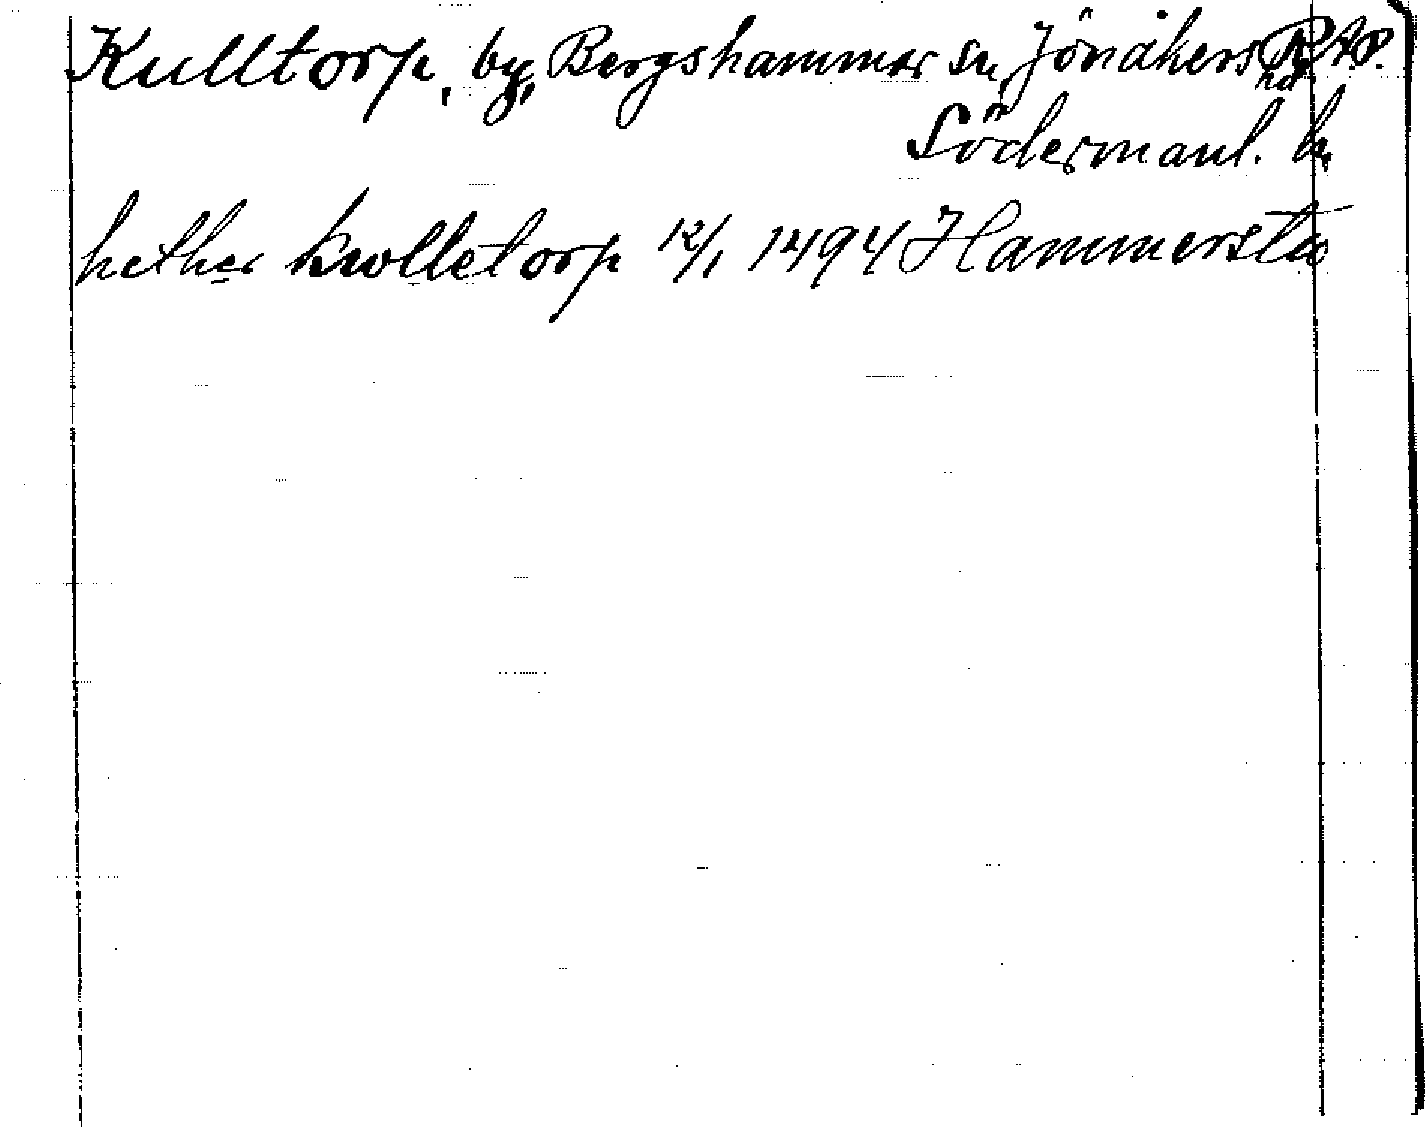 Kulltorp, by, Bergshammar sn, Jönåkers hd
Södermanl. l.
hether kwlletorp 12/1 1494 Hammersta